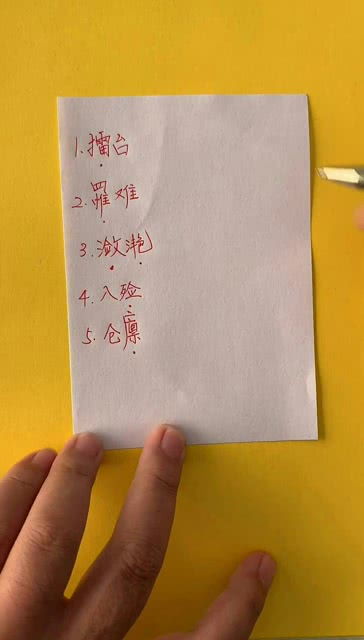 1.擂台
2.罹难
3.潋滟
4.入殓
5.仓廪